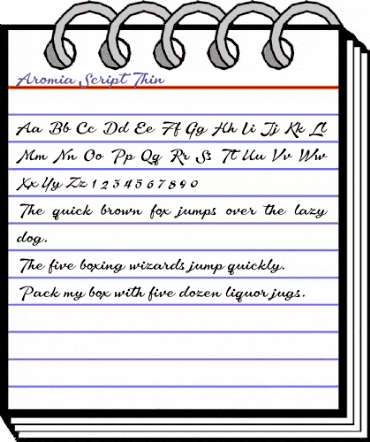 Aromia Script Thin
Aa Bb Cc Dd Ee Ff Gg Hh Ii Jj Kk Ll
Mm Nn Oo Pp Qq Rr Ss Tt Uu Vv Ww
Xx Yy Zz 1 2 3 4 5 6 7 8 9 0
The quick brown fox jumps over the lazy
dog.
The five boxing wizards jump quickly.
Pack my box with five dozen liquor jugs.